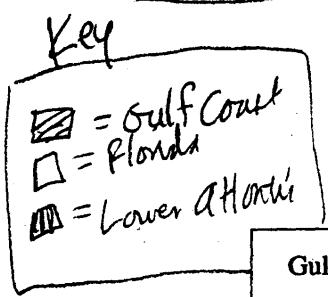 Key
= Gulf Coast
= Florida
= Lower Atlantic
Gul